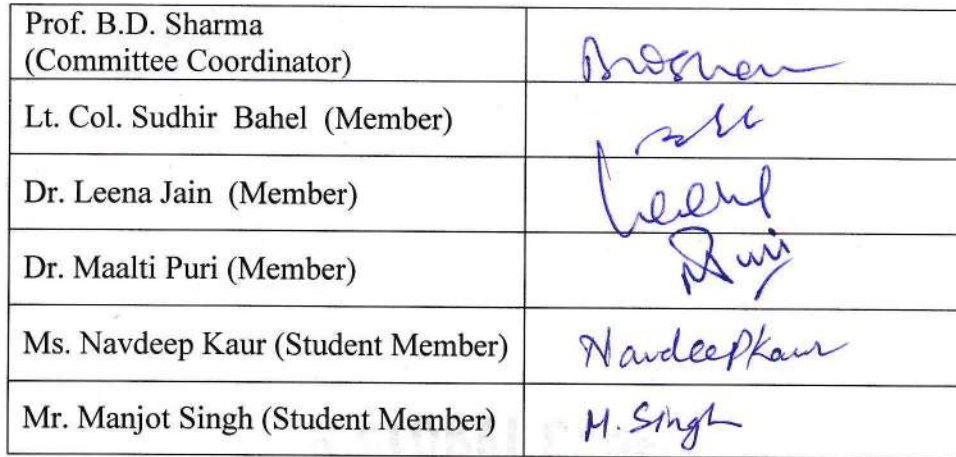 Prof. B.D. Sharma
(Committee Coordinator)
Lt. Col. Sudhir Bahel (Member)
Dr. Leena Jain (Member)
Dr. Maalti Puri (Member)
Puri
Ms. Navdeep Kaur (Student Member)
Navdeepkaur
Mr. Manjot Singh (Student Member)
M. Singh